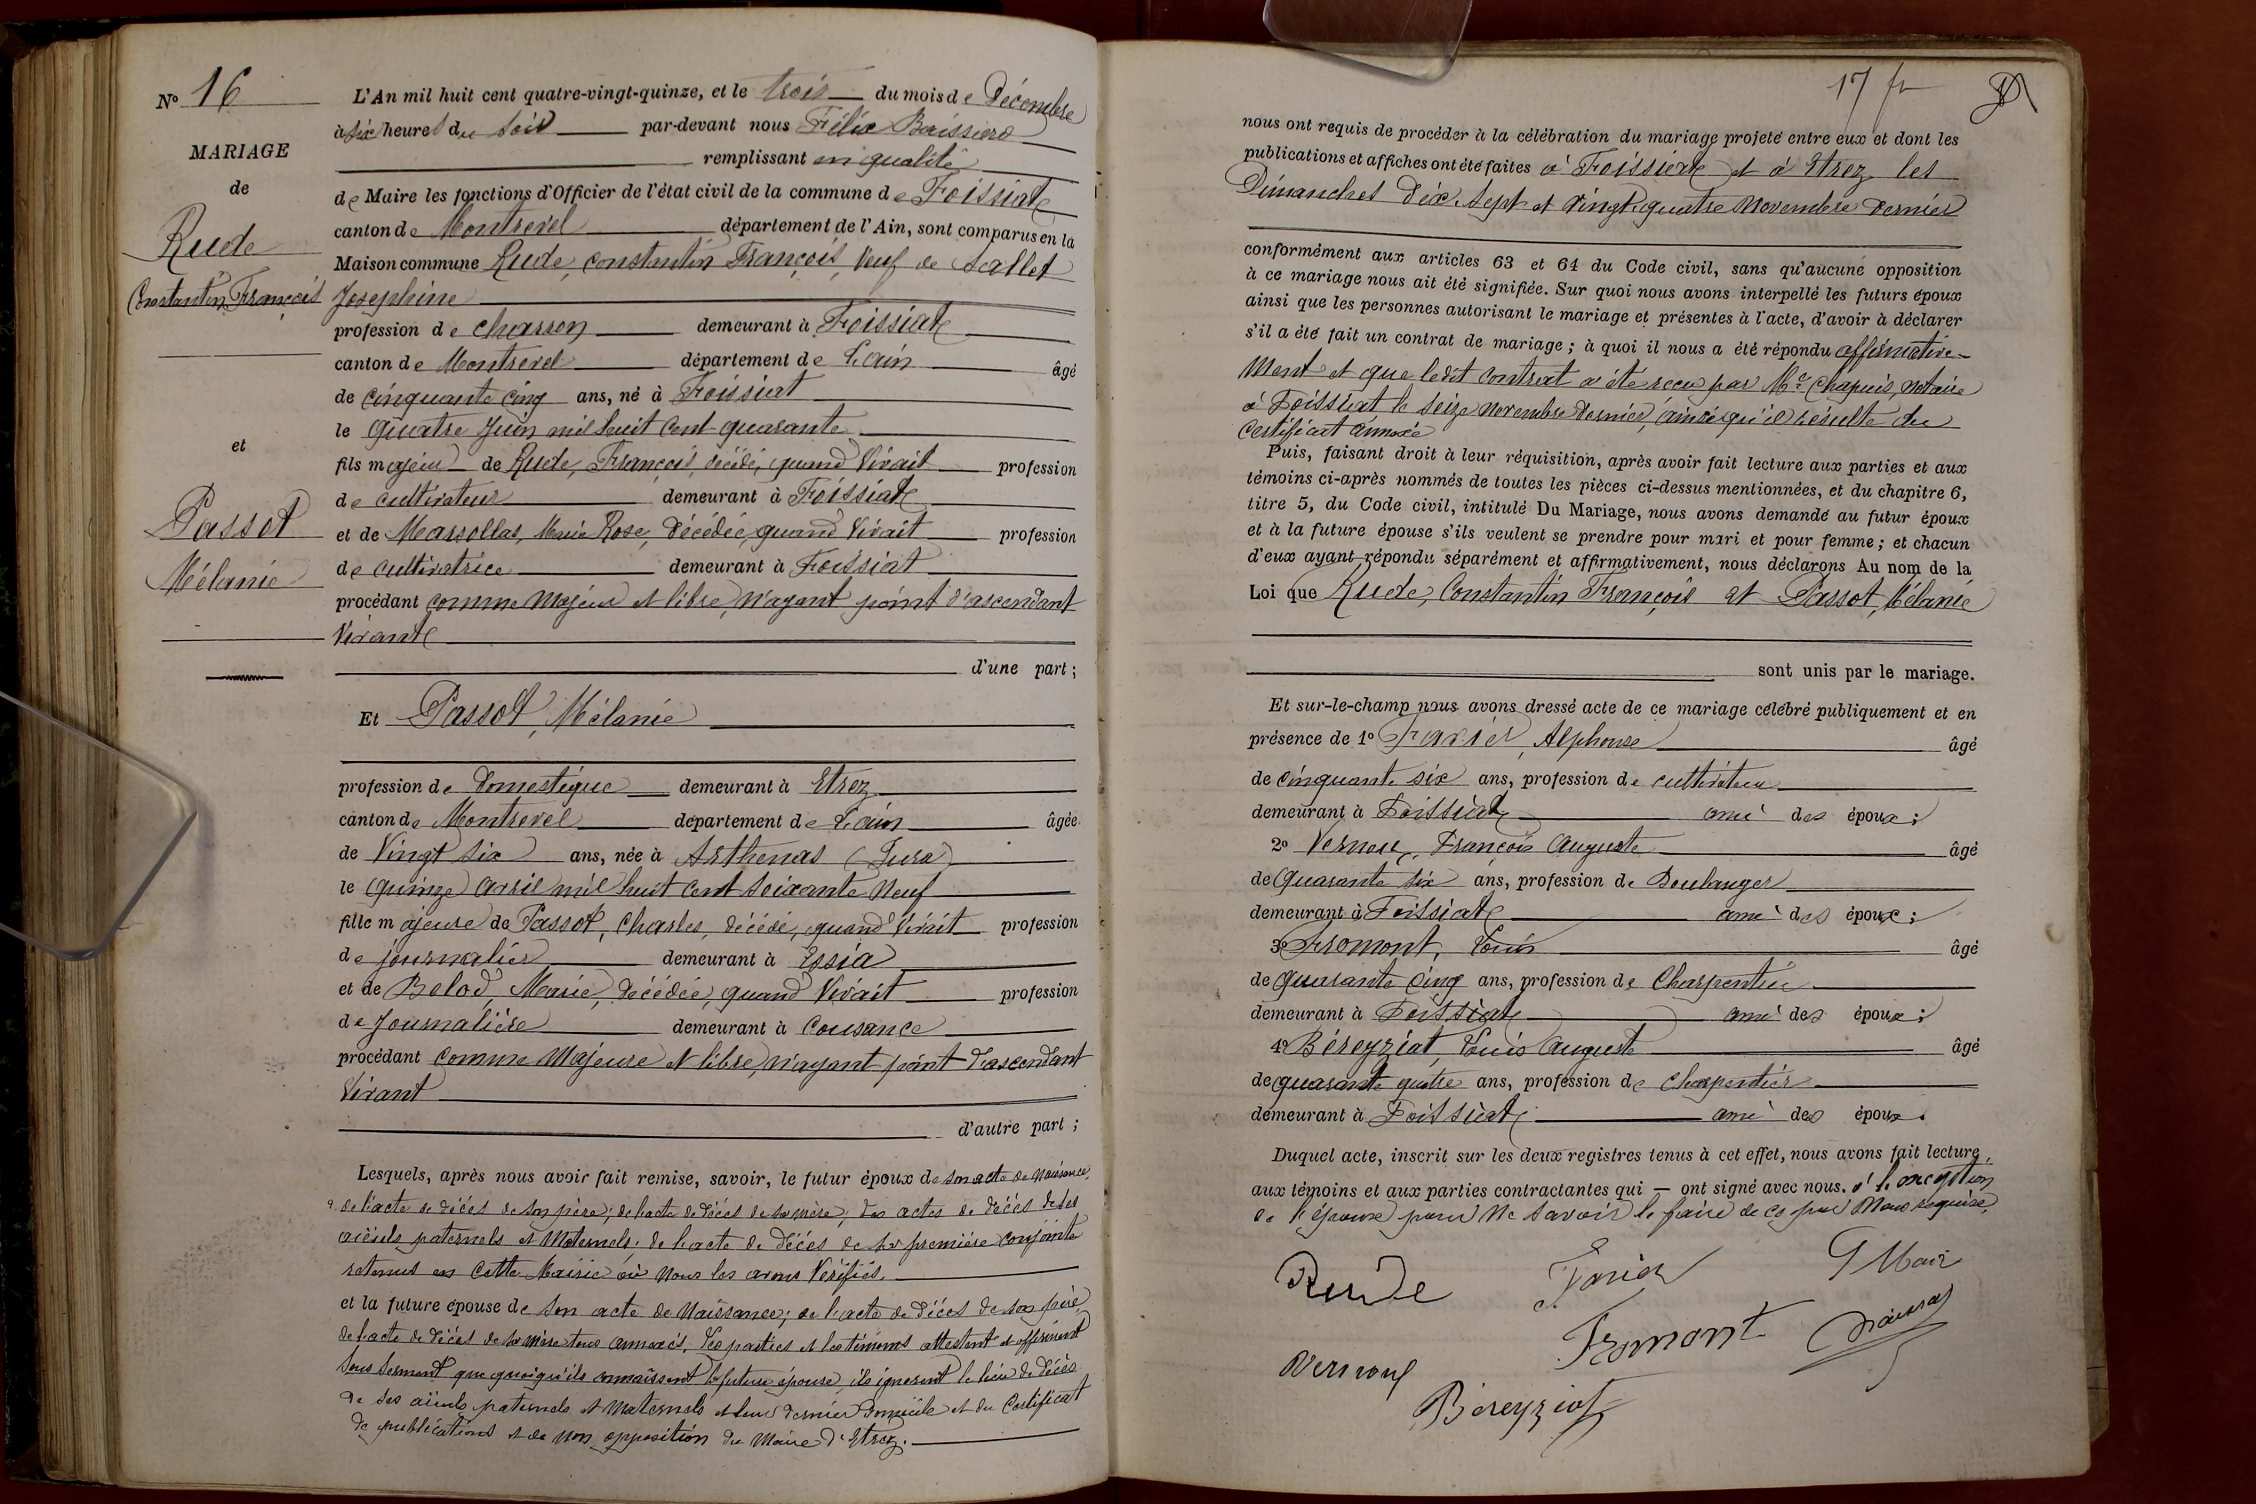 N° 16
MARIAGE
de
Rude
Constantin François
et
Passot
Mélanie
L'An mil huit cent quatre-vingt-quinze, et le trois du mois de Décembre
à six heures du soir par-devant nous Félix
remplissant en qualité
de Maire les fonctions d'Officier de l'état civil de la commune de Foissiat
canton de Montrevel département de l'Ain, sont comparus en la
Maison commune Rude, Constantin François, Veuf de Sallet
Josephine
profession de charron demeurant à Foissiat
canton de Montrevel département de L'ain âgé
de cinquante cinq ans, né à Foissiat
le quatre Juin mil huit cent quarante
fils majeur de Rude, François, décédé, quand Vivait profession
de cultivateur demeurant à Foissiat
et de Massollas, Marie Rose, Décédée, quand Vivait profession
de cultivatrice demeurant à Foissiat
procédant comme Majeur et libre, n'ayant point d'ascendant
Vivant
d'une part ;
Et Passot, Mélanie
profession de Domestique demeurant à Etrez
canton de Montrevel département de L'ain âgée
de Vingt six ans, née à Arthenas (Jura)
le quinze avril mil huit cent soixante Neuf
fille majeure de Passot, Charles, décédé, quand Vivait profession
de journalier demeurant à Essia
et de Belod, Marie, Décédée, quand Vivait profession
de Journalière demeurant à Cousance
procédant comme Majeure et libre, n'ayant point d'ascendant
Vivant
d'autre part ;
Lesquels, après nous avoir fait remise, savoir, le futur époux de son acte de Naissance,
de l'acte de décés de son père; de l'acte de Décés de sa mère; des actes de Décés de ses
aïeuls paternels et Maternels; de l'acte de Décés de sa première conjointe
retenus en cette Mairie où Nous les avons Vérifiés.
et la future épouse de son acte de Naissance; de l'acte de Décés de son père,
de l'acte de Décés de sa mère tous annexés. Les parties et les témoins attestent et affirment
sous serment que quoiqu'ils connaissent la future épouse, ils ignorent le lieu de Décès
de ses aïeuls paternels et Maternels et leur dernier Domicile et du Certificat
de publications et de non opposition du Maire d'Etrez.
17 fr
nous ont requis de procéder à la célébration du mariage projeté entre eux et dont les
publications et affiches ont été faites à Foissiat et à Etrez les
Dimanches Dix Sept et Vingt quatre Novembre Dernier
conformément aux articles 63 et 64 du Code civil, sans qu'aucune opposition
à ce mariage nous ait été signifiée. Sur quoi nous avons interpellé les futurs époux
ainsi que les personnes autorisant le mariage et présentes à l'acte, d'avoir à déclarer
s'il a été fait un contrat de mariage ; à quoi il nous a été répondu affirmative-
Ment et que ledit contrat a été reçu par Me Chapuis, notaire
à Foissiat le seize Novembre Dernier, ainsi qu'il résulte du
Certificat annexé
Puis, faisant droit à leur réquisition, après avoir fait lecture aux parties et aux
témoins ci-après nommés de toutes les pièces ci-dessus mentionnées, et du chapitre 6,
titre 5, du Code civil, intitulé Du Mariage, nous avons demandé au futur époux
et à la future épouse s'ils veulent se prendre pour mari et pour femme ; et chacun
d'eux ayant répondu séparément et affirmativement, nous déclarons Au nom de la
Loi que Rude, Constantin François et Passot, Mélanie
sont unis par le mariage.
Et sur-le-champ nous avons dressé acte de ce mariage célébré publiquement et en
présence de 1° Favier, Alphonse âgé
de cinquante six ans, profession de cultivateur
demeurant à Foissiat ami des époux ;
2° Vernoux, François Auguste âgé
de Quarante six ans, profession de Boulanger
demeurant à Foissiat ami des époux ;
3° Fromont, Louis âgé
de quarante cinq ans, profession de Charpentier
demeurant à Foissiat ami des époux ;
4° Béreyziat, Louis Auguste âgé
de quarante quatre ans, profession de charpentier
demeurant à Foissiat ami des époux.
Duquel acte, inscrit sur les deux registres tenus à cet effet, nous avons fait lecture,
aux témoins et aux parties contractantes qui — ont signé avec nous. à l'exception
de l'épouse pour Ne savoir le faire de ce par Nous requise,
Rude Favier
Fromont
Vernoux
Béreyziat